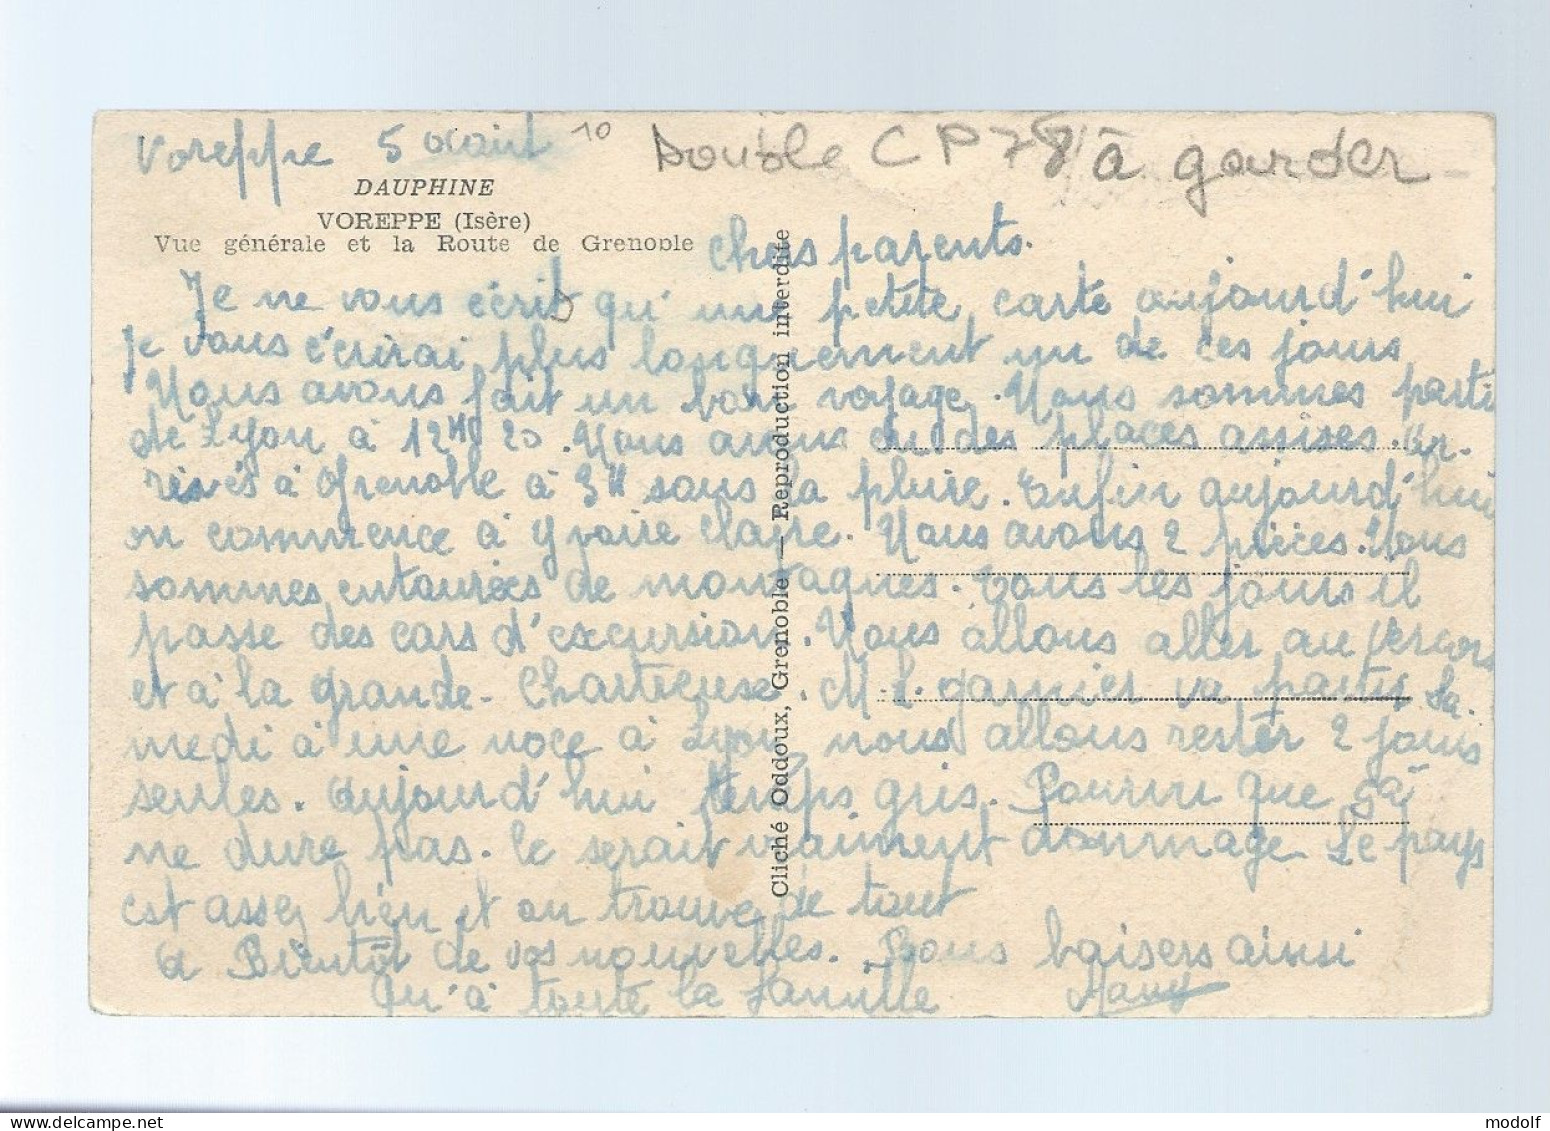 Voreppe 5 aout 10 Double CP 78 à garder
DAUPHINE
VOREPPE (Isère)
Vue générale et la Route de Grenoble
Chers parents.
Je ne vous écris qu'une petite carte aujourd'hui
je vous écrirai plus longuement un de ces jours
Nous avons fait un bon voyage. Nous sommes parti
de Lyon à 12H20. Nous avons eu des places assises. Ar-
rivés à Grenoble à 3H sous la pluie. Enfin aujourd'hui
on commence à y voire claire. Nous avons 2 pièces. Nous
sommes entourées de montagnes. Tous les jours il
passe des cars d'excursion. Nous allons aller au Vercors
et à la grande-Chartreuse. M L. garnier va partir Sa-
medi à une noce à Lyon, nous allons rester 2 jours
seules. aujourd'hui temps gris. Pourvu que sa
ne dure pas. Ce serait vraiment dommage. Le pays
est assez bien et on trouve de tout
a Bientôt de vos nouvelles. Bons baisers ainsi
qu'à toute la famille
Cliché Oddoux, Grenoble — Reproduction interdite
modolf